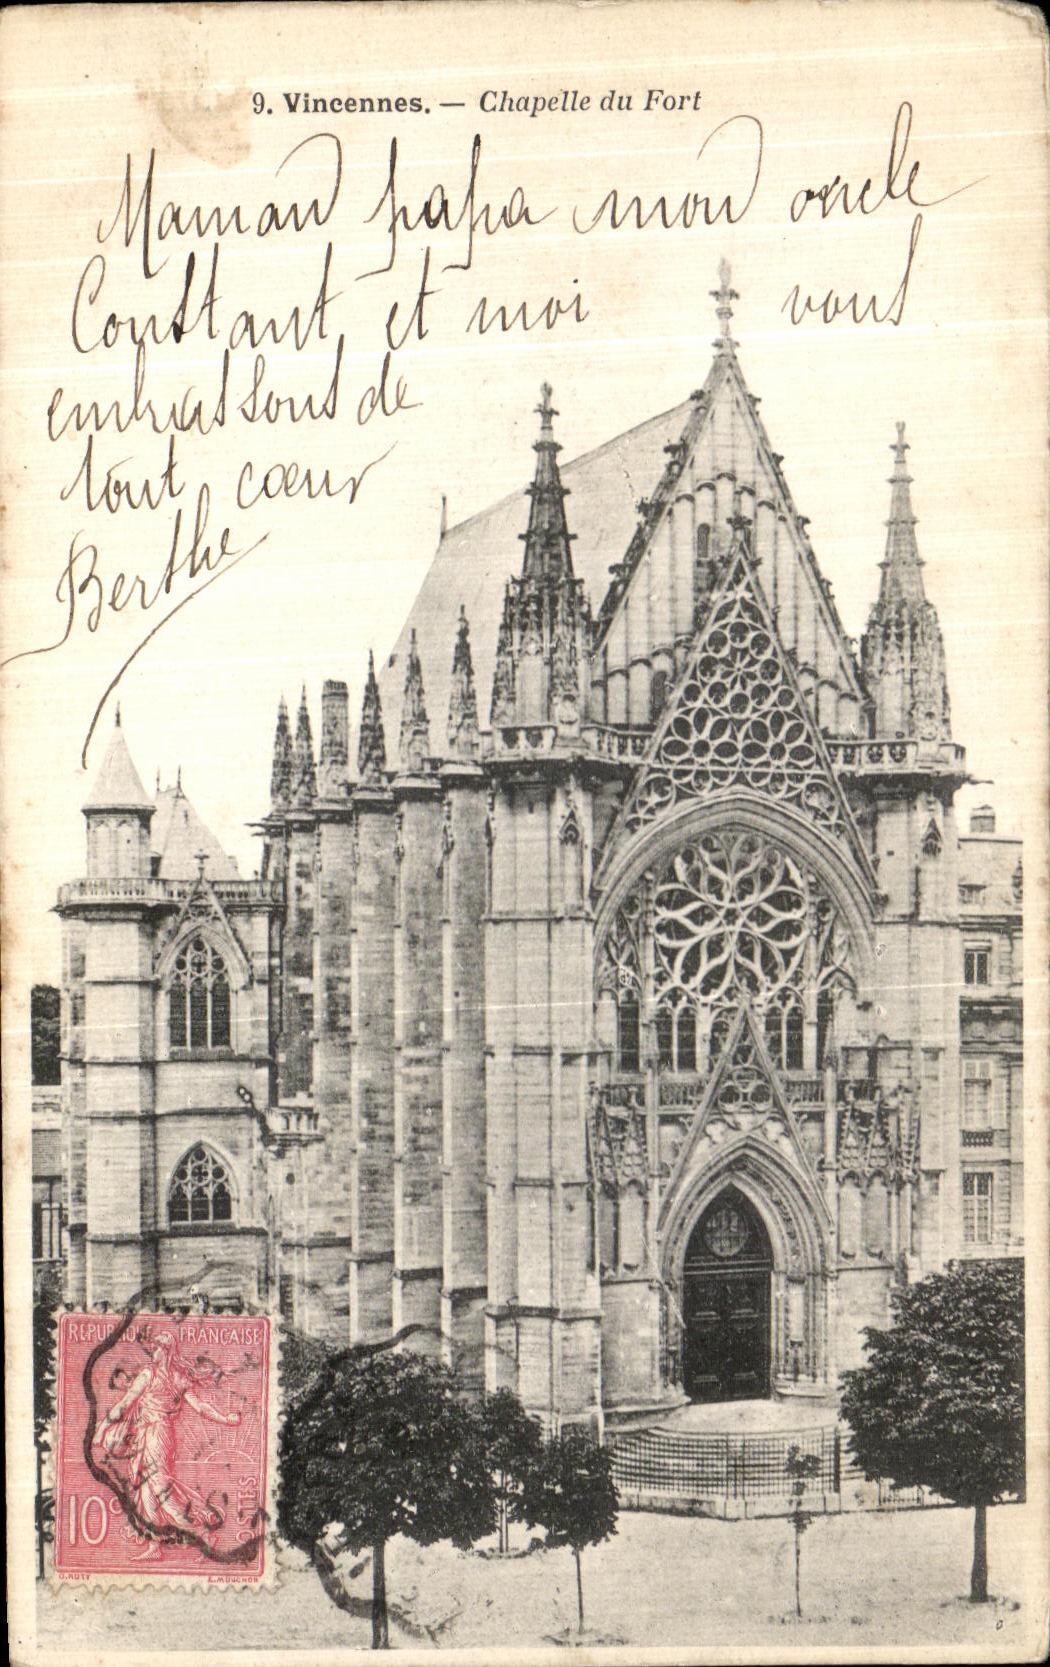 9. Vincennes. — Chapelle du Fort
Maman papa mon oncle
Constant et moi vous
embrassons de
tout cœur
Berthe
REPUBLIQUE FRANÇAISE
10c
POSTES
O. ROTY
E. MOUCHON